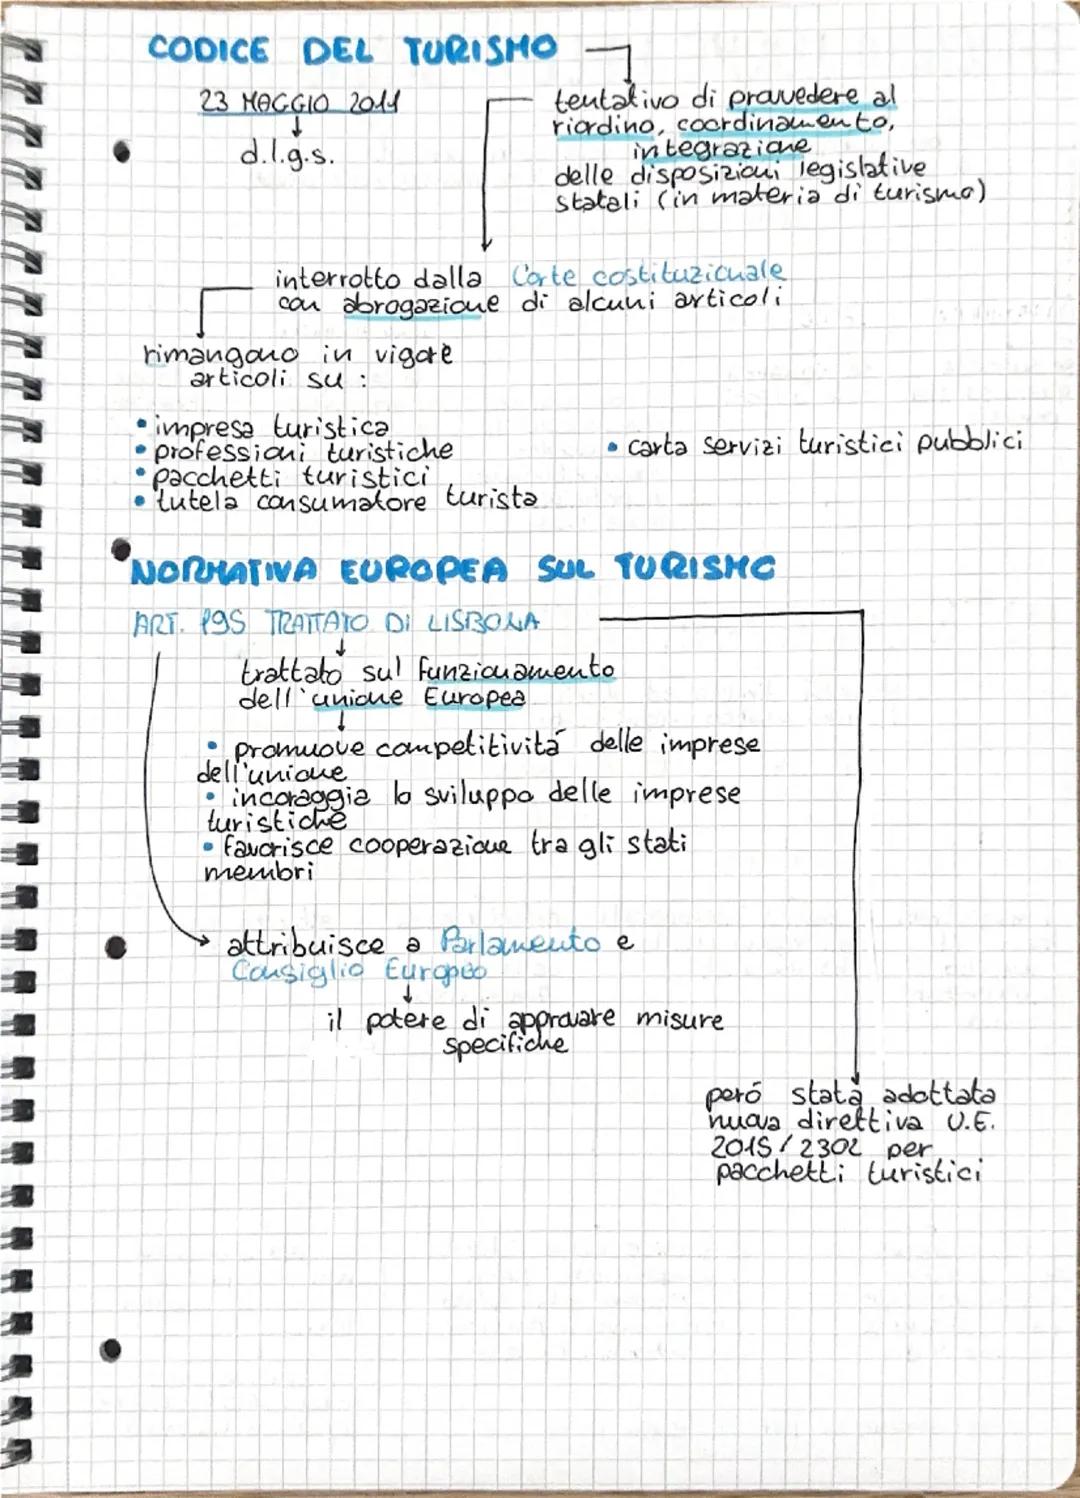 CODICE DEL TURISMO
23 MAGGIO 2011
d.l.g.s.
tentativo di provvedere al
riordino, coordinamento,
integrazione
delle disposizioni legislative
statali (in materia di turismo)
interrotto dalla Corte costituzionale
con abrogazione di alcuni articoli
rimangono in vigore
articoli su :
• impresa turistica
• professioni turistiche
• pacchetti turistici
• tutela consumatore turista
• carta servizi turistici pubblici
NORMATIVA EUROPEA SUL TURISMO
ART. 195 TRATTATO DI LISBONA
trattato sul funzionamento
dell'unione Europea
• promuove competitivitá delle imprese
dell'unione
• incoraggia lo sviluppo delle imprese
turistiche
• favorisce cooperazione tra gli stati
membri
attribuisce a Parlamento e
Consiglio Europeo
il potere di approvare misure
specifiche
peró stata adottata
nuova direttiva U.E.
2015/2302 per
pacchetti turistici